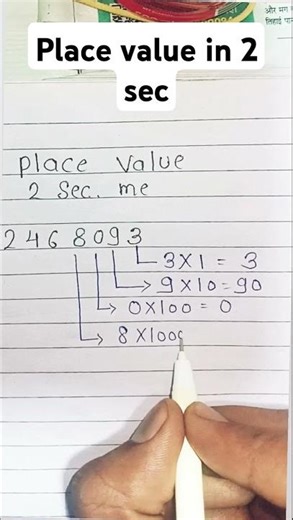 और मग
तिहाई पान
Place value in 2
sec
Place Value
2 Sec. me
2468093
3X1 = 3
9X10=90
0X100=0
8X1000